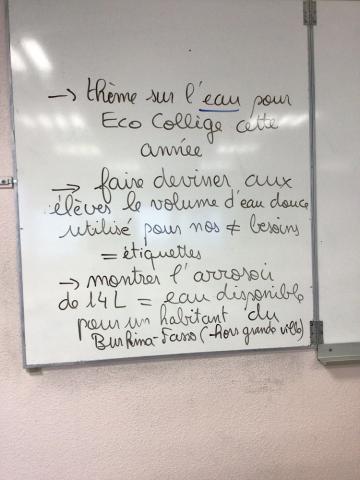 → thème sur l'eau pour
Eco Collège cette
année
→ faire deviner aux
élèves le volume d'eau douce
utilisé pour nos ≠ besoins
= étiquettes
→ montrer l'arrosoir
de 14 L = eau disponible
pour un habitant du
Burkina-Faso (-hors grande ville)